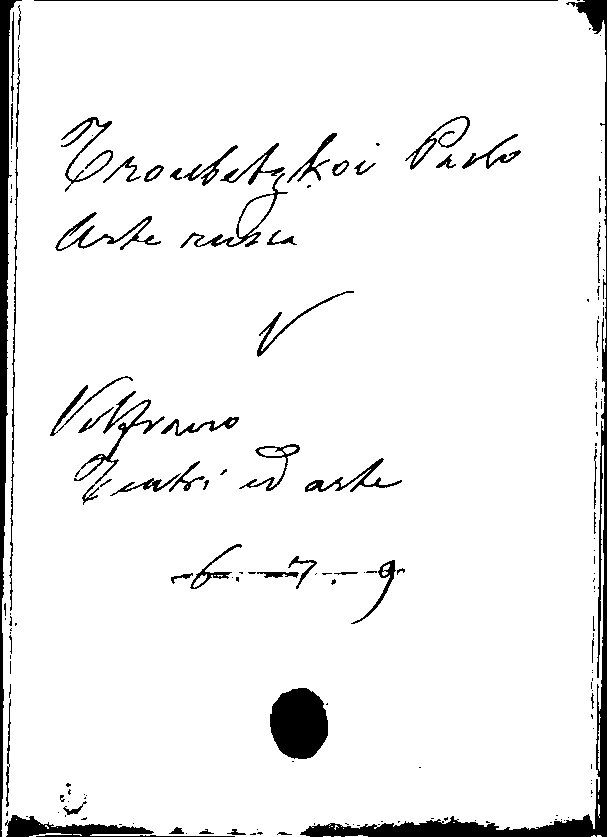 Troubetzkoi Paolo
Arte russa
V
Teatri ed arte
6. 7. 9